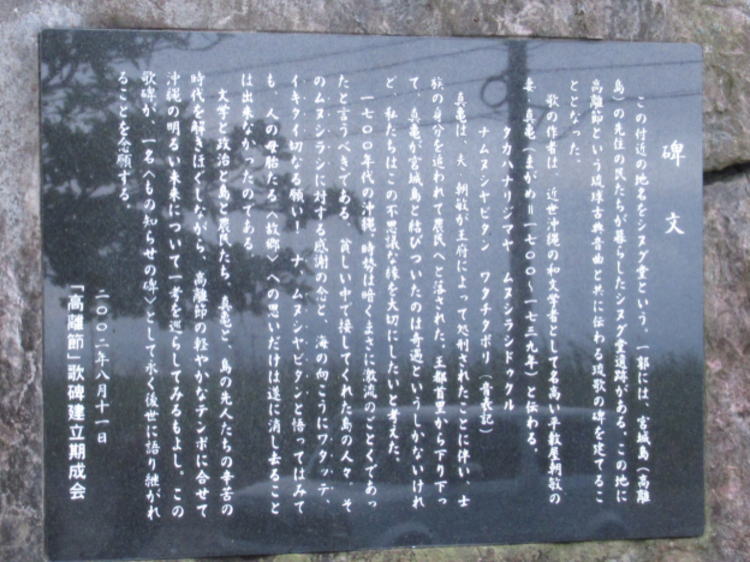 碑文
この付近の地名をシヌグ堂という。一郭には、宮城島（高離
島）の先住の民たちが暮らしたシヌグ堂遺跡がある。この地に
高離節という琉球古典音曲と共に伝わる琉歌の碑を建てるこ
ととなった。
歌の作者は、近世沖縄の和文学者として名高い平敷屋朝敏の
妻、真亀（まがめ＝一七〇〇〜一七三九年）と伝わる。
タカハナリシマヤ ムヌシラシドゥクル
ナムヌシヤビタン ワタチタボリ（音表記）
真亀は、夫、朝敏が王府によって処刑されたことに伴い、士
族の身分を追われて農民へと落された。王都首里から下り下っ
て、真亀が宮城島と結びついたのは奇遇というしかないけれ
ど、私たちはこの不思議な縁を大切にしたいと考えた。
一七〇〇年代の沖縄、時勢は暗くまさに激流のごとくであっ
たと言うべきである。貧しい中で接してくれた島の人々、そ
のムヌシラシに対する感謝の念と、海の向こうにワタッテ、
イキタイ切なる願い！ナ、ムヌシヤビタンと悟ってはみて
も、人の母胎たる〈故郷〉への思いだけは遂に消し去ること
は出来なかったのである。
文学と政治と島と農民たち、真亀と、島の先人たちの辛苦の
時代を解きほぐしながら、高離節の軽やかなテンポに合せて
沖縄の明るい未来について一考を巡らしてみるもよし。この
歌碑が、一名〈もの知らせの碑〉として永く後世に語り継がれ
ることを念願する。
二〇〇二年八月十一日
「高離節」歌碑建立期成会